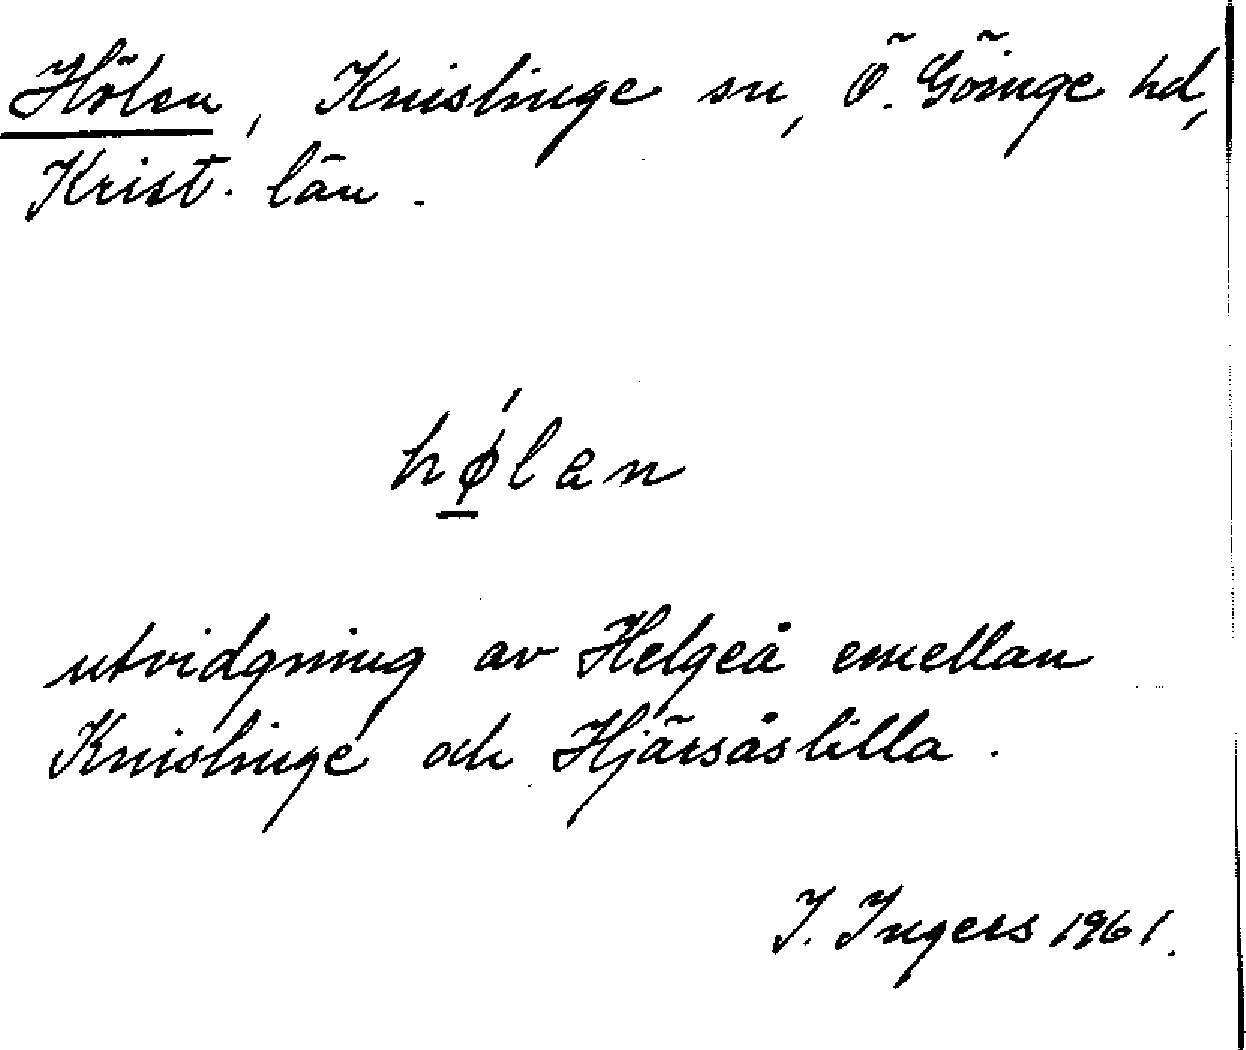 Hölen, Knislinge sn, Ö. Göinge hd,
Krist. län.
hǿlən
utvidgning av Helgeå emellan
Knislinge och Hjärsåslilla.
I. Ingers 1961.